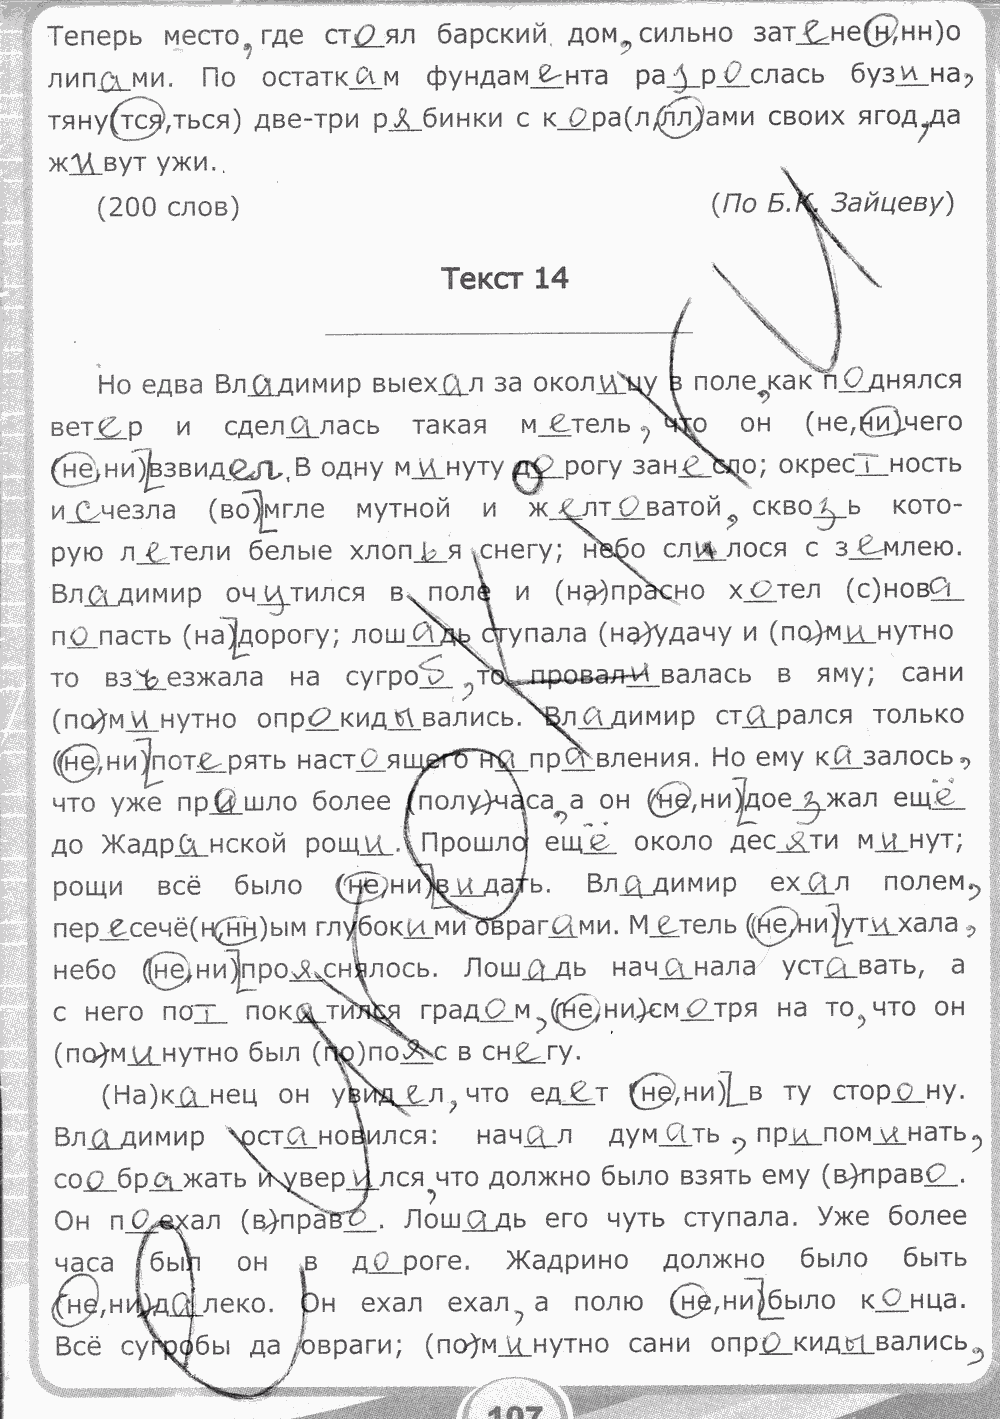 Теперь место, где стоял барский дом, сильно затене(н,нн)о
липами. По остаткам фундамента разрослась бузина,
тяну(тся,ться) две-три рябинки с кора(л,лл)ами своих ягод, да
живут ужи.
(200 слов) (По Б.К. Зайцеву)
Текст 14
Но едва Владимир выехал за околицу в поле, как поднялся
ветер и сделалась такая метель, что он (не,ни)чего
(не,ни)взвидел. В одну минуту дорогу занесло; окрестность
исчезла (во)мгле мутной и желтоватой, сквозь кото-
рую летели белые хлопья снегу; небо слилося с землею.
Владимир очутился в поле и (на)прасно хотел (с)нова
попасть (на)дорогу; лошадь ступала (на)удачу и (по)минутно
то взъезжала на сугроб, то проваливалась в яму; сани
(по)минутно опрокидывались. Владимир старался только
(не,ни)потерять настоящего направления. Но ему казалось,
что уже прошло более (полу)часа, а он (не,ни)доезжал ещё
до Жадринской рощи. Прошло ещё около десяти минут;
рощи всё было (не,ни)видать. Владимир ехал полем,
пересечё(н,нн)ым глубокими оврагами. Метель (не,ни)утихала,
небо (не,ни)прояснялось. Лошадь начанала уставать, а
с него пот покатился градом, (не,ни)смотря на то, что он
(по)минутно был (по)пояс в снегу.
(На)канец он увидел, что едет (не,ни) в ту сторону.
Владимир остановился: начал думать, припоминать,
соображать и уверился, что должно было взять ему (в)право.
Он поехал (в)право. Лошадь его чуть ступала. Уже более
часа был он в дороге. Жадрино должно было быть
(не,ни)далеко. Он ехал ехал, а полю (не,ни)было конца.
Всё сугробы да овраги; (по)минутно сани опрокидывались,
107